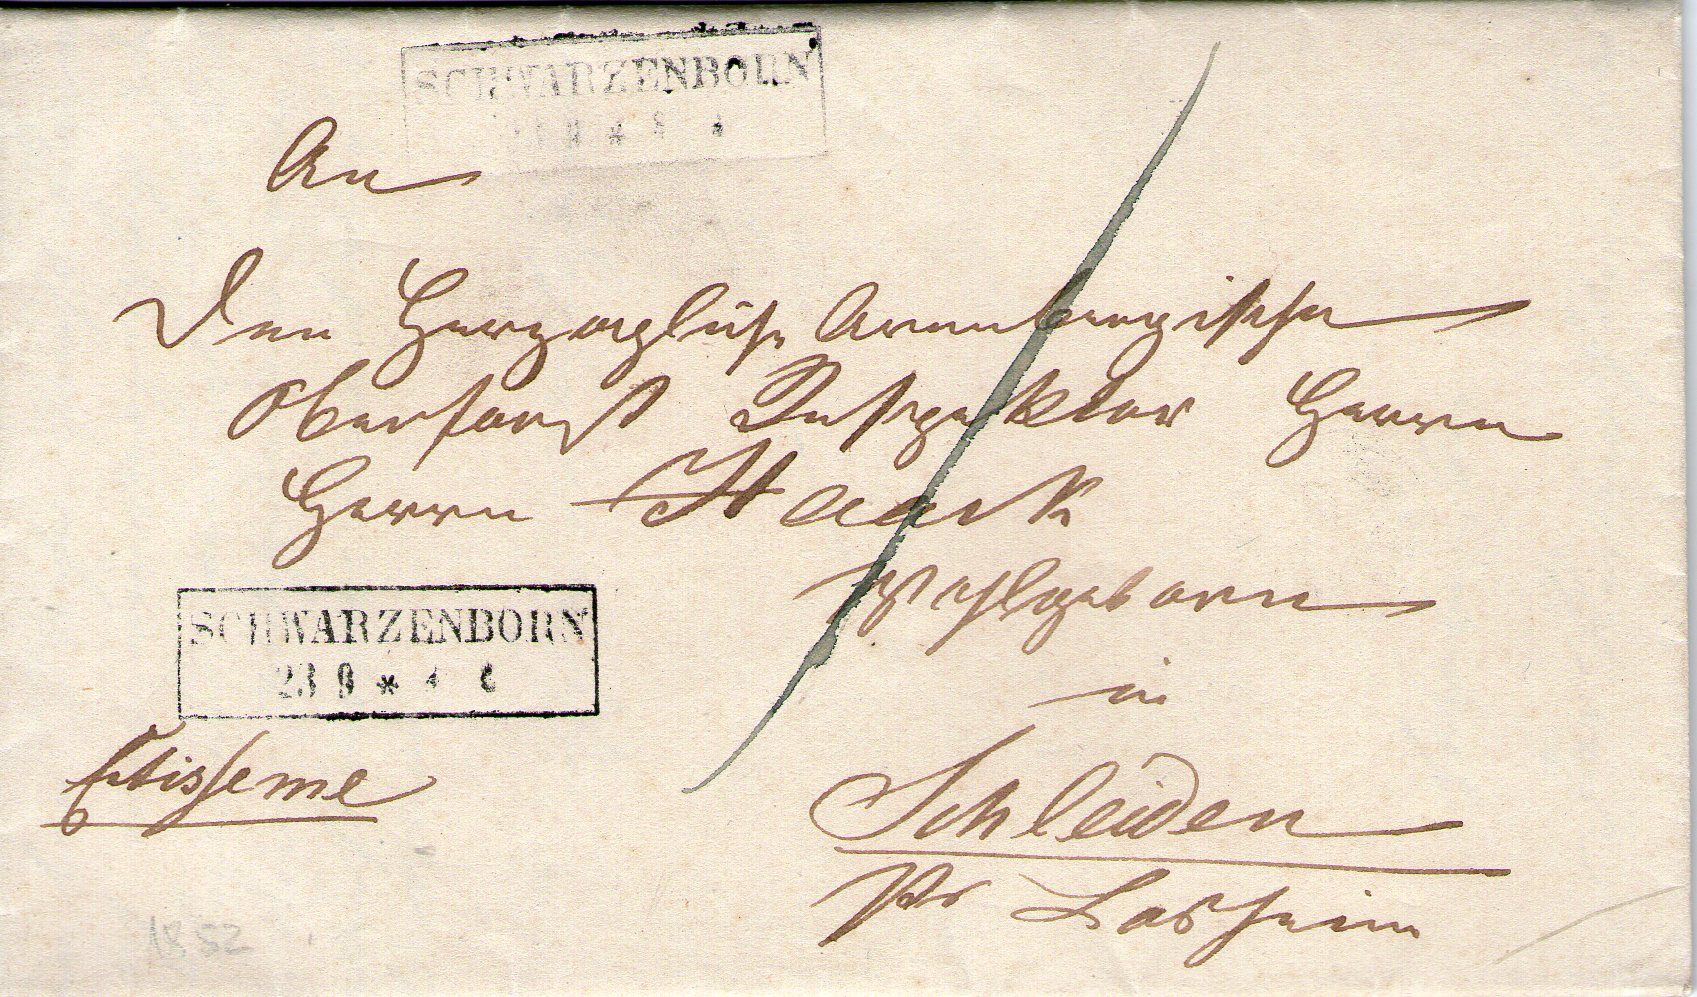 SCHWARZENBORN
An
Den Herzogliche Arenbergische
Oberforst Inspektor Herrn
Herrn Haack
Wohlgeborn
in
Schleiden
Pr Losheim
SCHWARZENBORN
23 9 *
Citisseme
1852